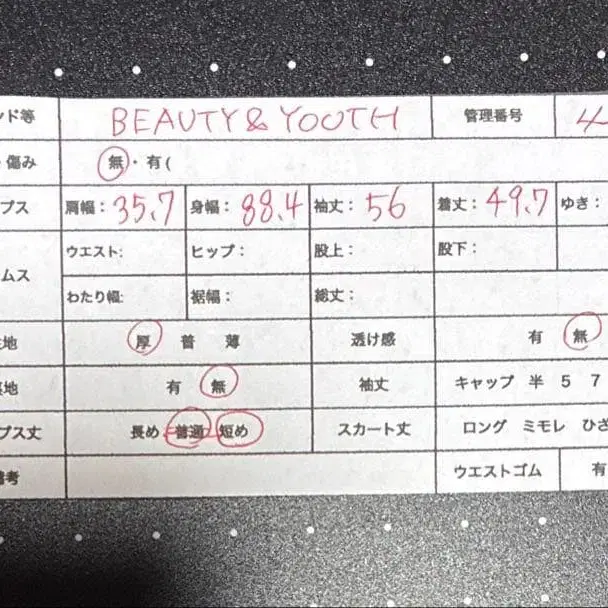 ンド等 BEAUTY & YOUTH 管理番号
・傷み 無・有(
プス 肩幅：35.7 身幅：88.4 袖丈：56 着丈：49.7 ゆき：
ムス ウエスト： ヒップ： 股上： 股下：
わたり幅： 裾幅： 総丈：
地 厚 普 薄 透け感 有 無
地 有 無 袖丈 キャップ 半 5 7
プス丈 長め 普通 短め スカート丈 ロング ミモレ ひざ
備考 ウエストゴム 有